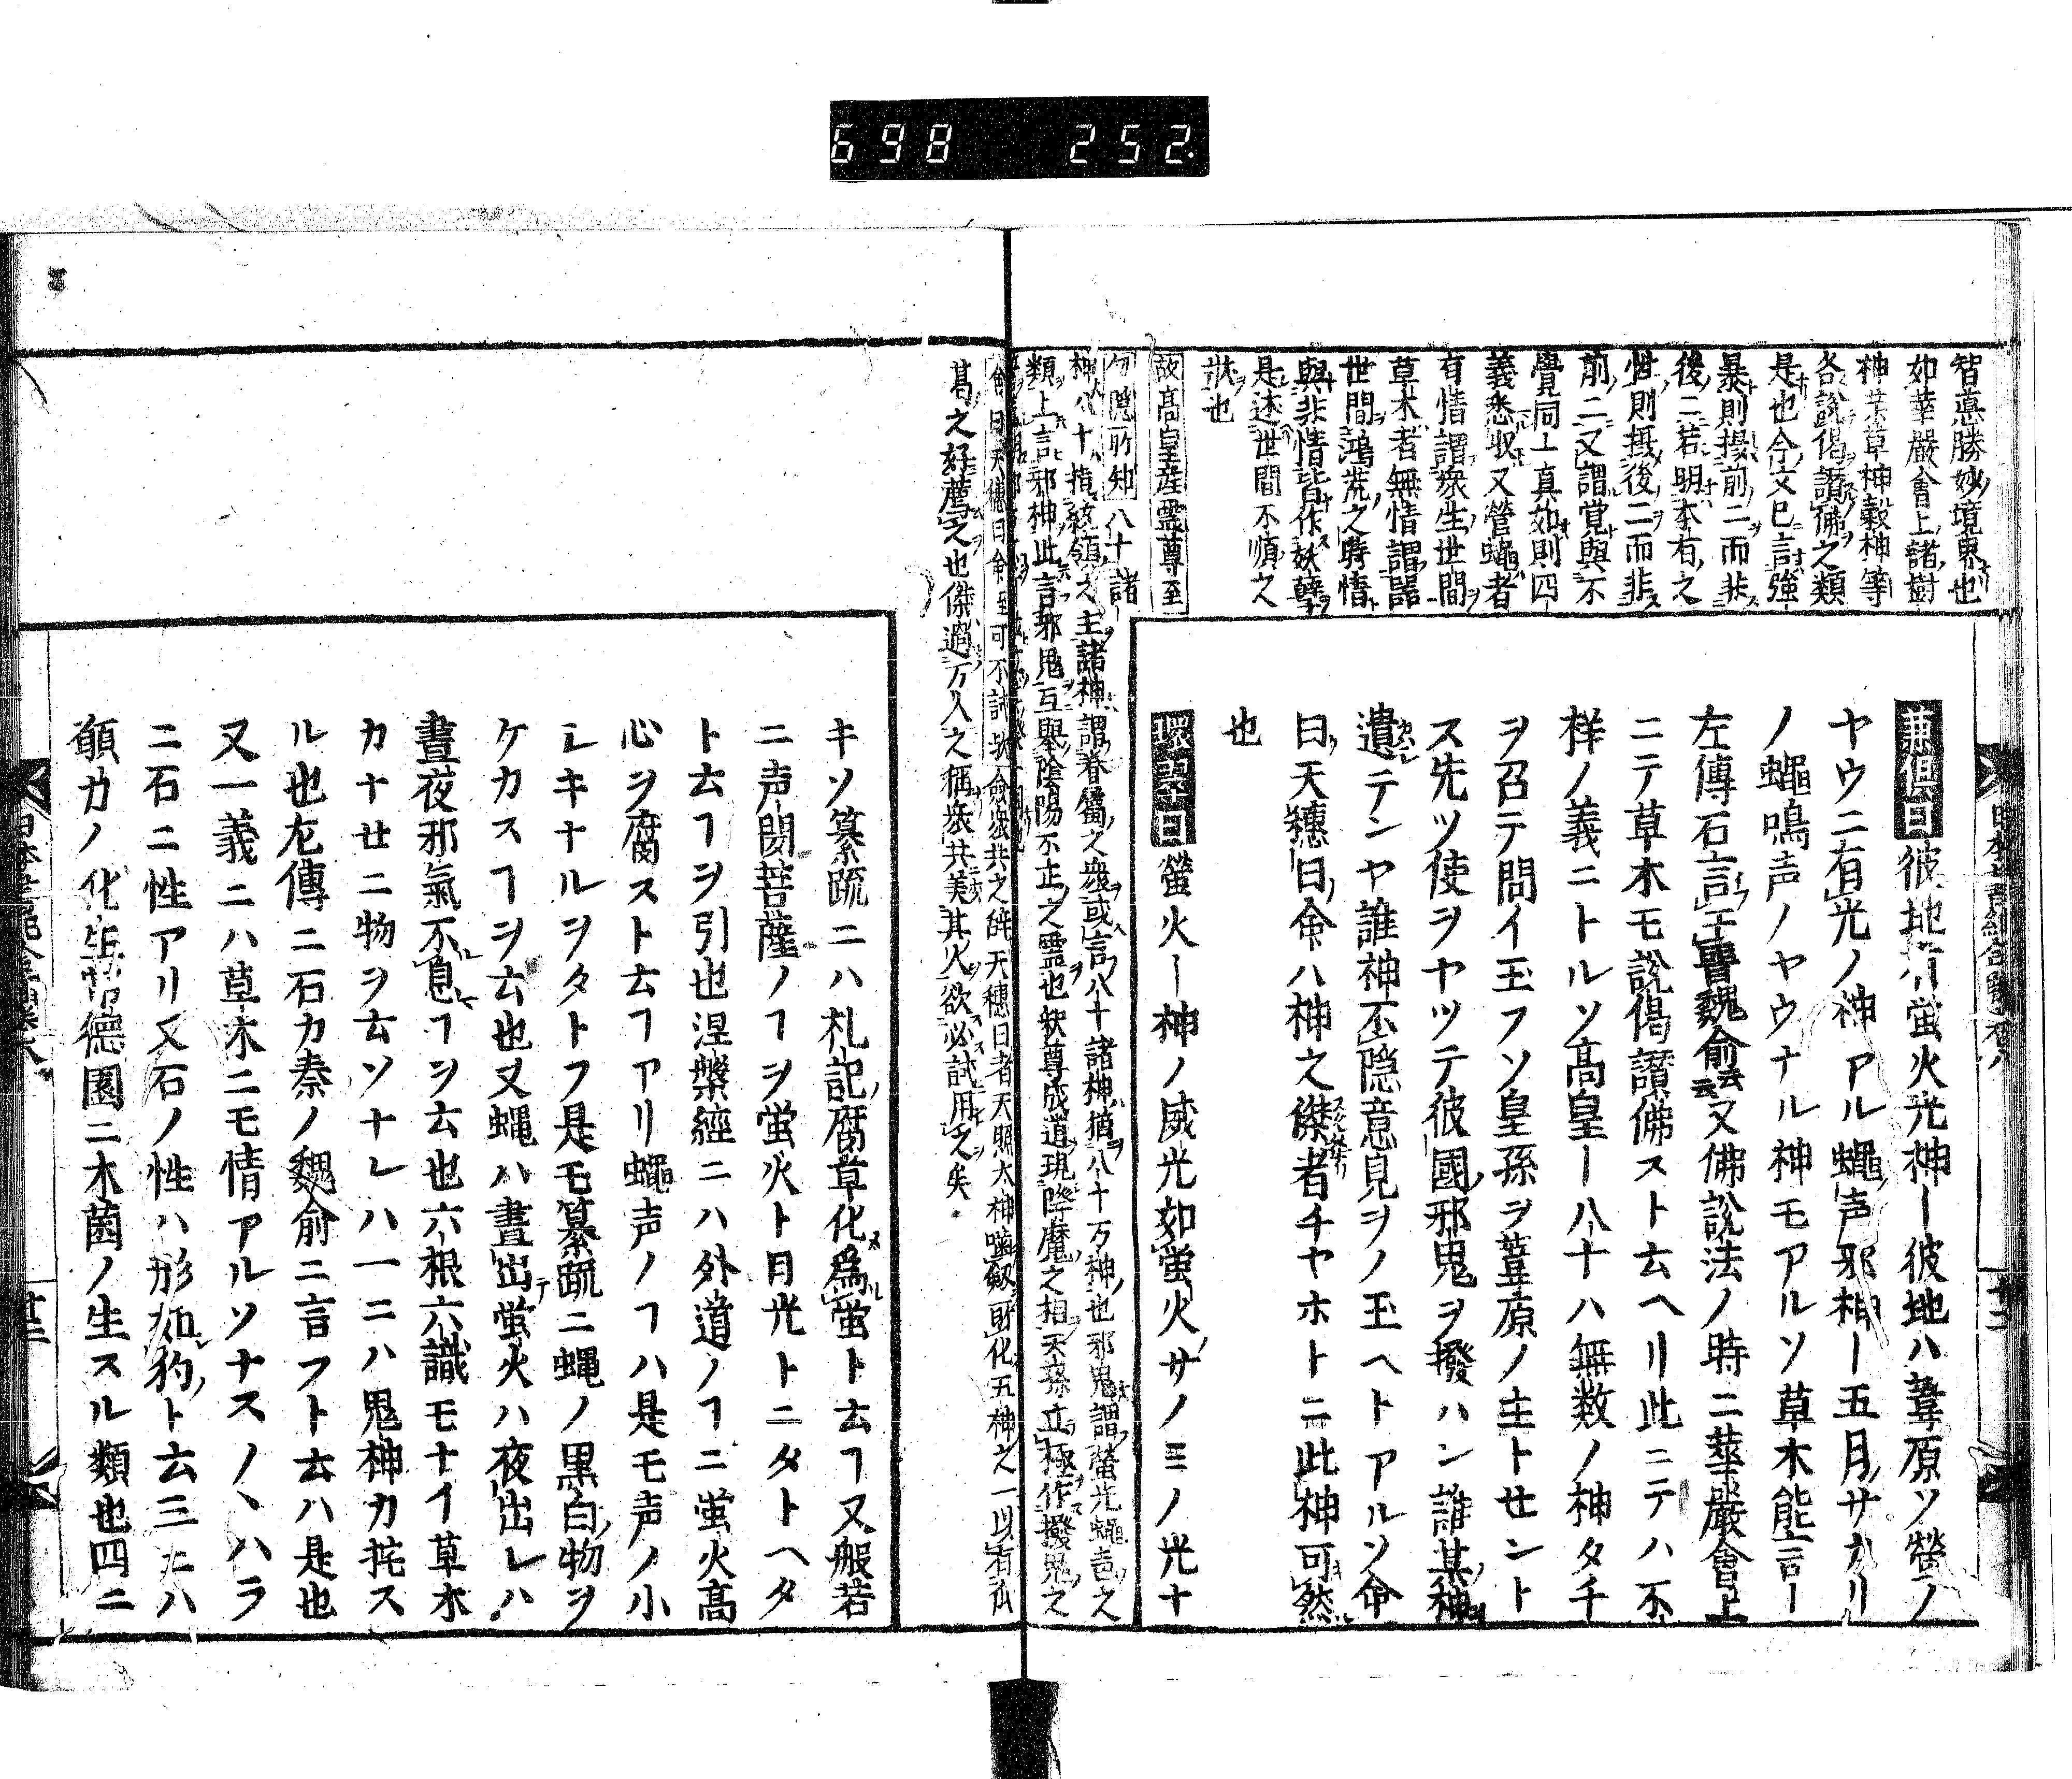 698 252
智慧勝妙境界也
如華嚴會上諸樹
神藥草神穀神等
各說偈讚佛之類
是也今文已言強
暴則攝前二而非
後二若明本有之
性則攝後二而非
前二又謂覚與不
覺同一真如則四
義悉収又管蠅者
有情謂衆生世間
草木者無情謂器
世間鴻荒之時情
與非情皆作妖孽
是述世間不順之
狀也
故高皇産霊尊至
勿隠所知八十諸
神八十指統領之主諸神謂眷屬之衆或言八十諸神猶八十万神也邪鬼謂螢光蠅声之
類上言邪神此言邪鬼互舉陰陽不正之霊也釈尊成道現降魔之相天孫立極作撥鬼之
兼俱曰彼地有蛍火光神ー彼地ハ葦原ソ螢ノ
ヤウニ有光ノ神アル蠅声邪神ー五月サカリ
ノ蠅鳴声ノヤウナル神モアルソ草木能言ー
左傳石言于晋魏俞云云又佛説法ノ時ニ華嚴會上
ニテ草木モ説偈讃佛スト云ヘリ此ニテハ不
样ノ義ニトルソ高皇ー八十ハ無数ノ神タチ
ヲ召テ問イ玉フソ皇孫ヲ葦原ノ主トせント
ス先ツ使ヲヤツテ彼國邪鬼ヲ撥ハン誰某神
遣テンヤ誰神不隠意見ヲノ玉ヘトアルソ命
曰天穂日命ハ神之傑者チヤホトニ此神可然
也
環翠曰螢火ー神ノ威光如蛍火サノミノ光ナ
僉曰天穂日命至可不試歟僉衆共之辞天穂日者天照太神囓釼財化五神之一以有瓜
葛之好薦之也傑過万人之稱衆共美其火欲必試用之矣
キソ纂疏ニハ札記腐草化為蛍ト云ヿ又般若
ニ声聞菩薩ノヿヲ蛍火ト日光トニタトヘタ
ト云ヿヲ引也涅槃經ニハ外道ノヿニ蛍火高
心ヲ腐スト云ヿアリ蠅声ノヿハ是モ声ノ小
シキナルヲタトフ是モ纂疏ニ蠅ノ黒白物ヲ
ケカスヿヲ云也又蠅ハ晝出蛍火ハ夜出レハ
晝夜邪氣不息ヿヲ云也六根六識モナイ草木
カナせニ物ヲ云ソナレハ一ニハ鬼神カ託ス
ル也左傳ニ石カ秦ノ魏俞ニ言フト云ハ是也
又一義ニハ草木ニモ情アルソナスノヽハラ
ニ石ニ性アリ又石ノ性ハ形如豹ト云三ニハ
願力ノ化生前徳園ニ木菌ノ生スル類也四ニ